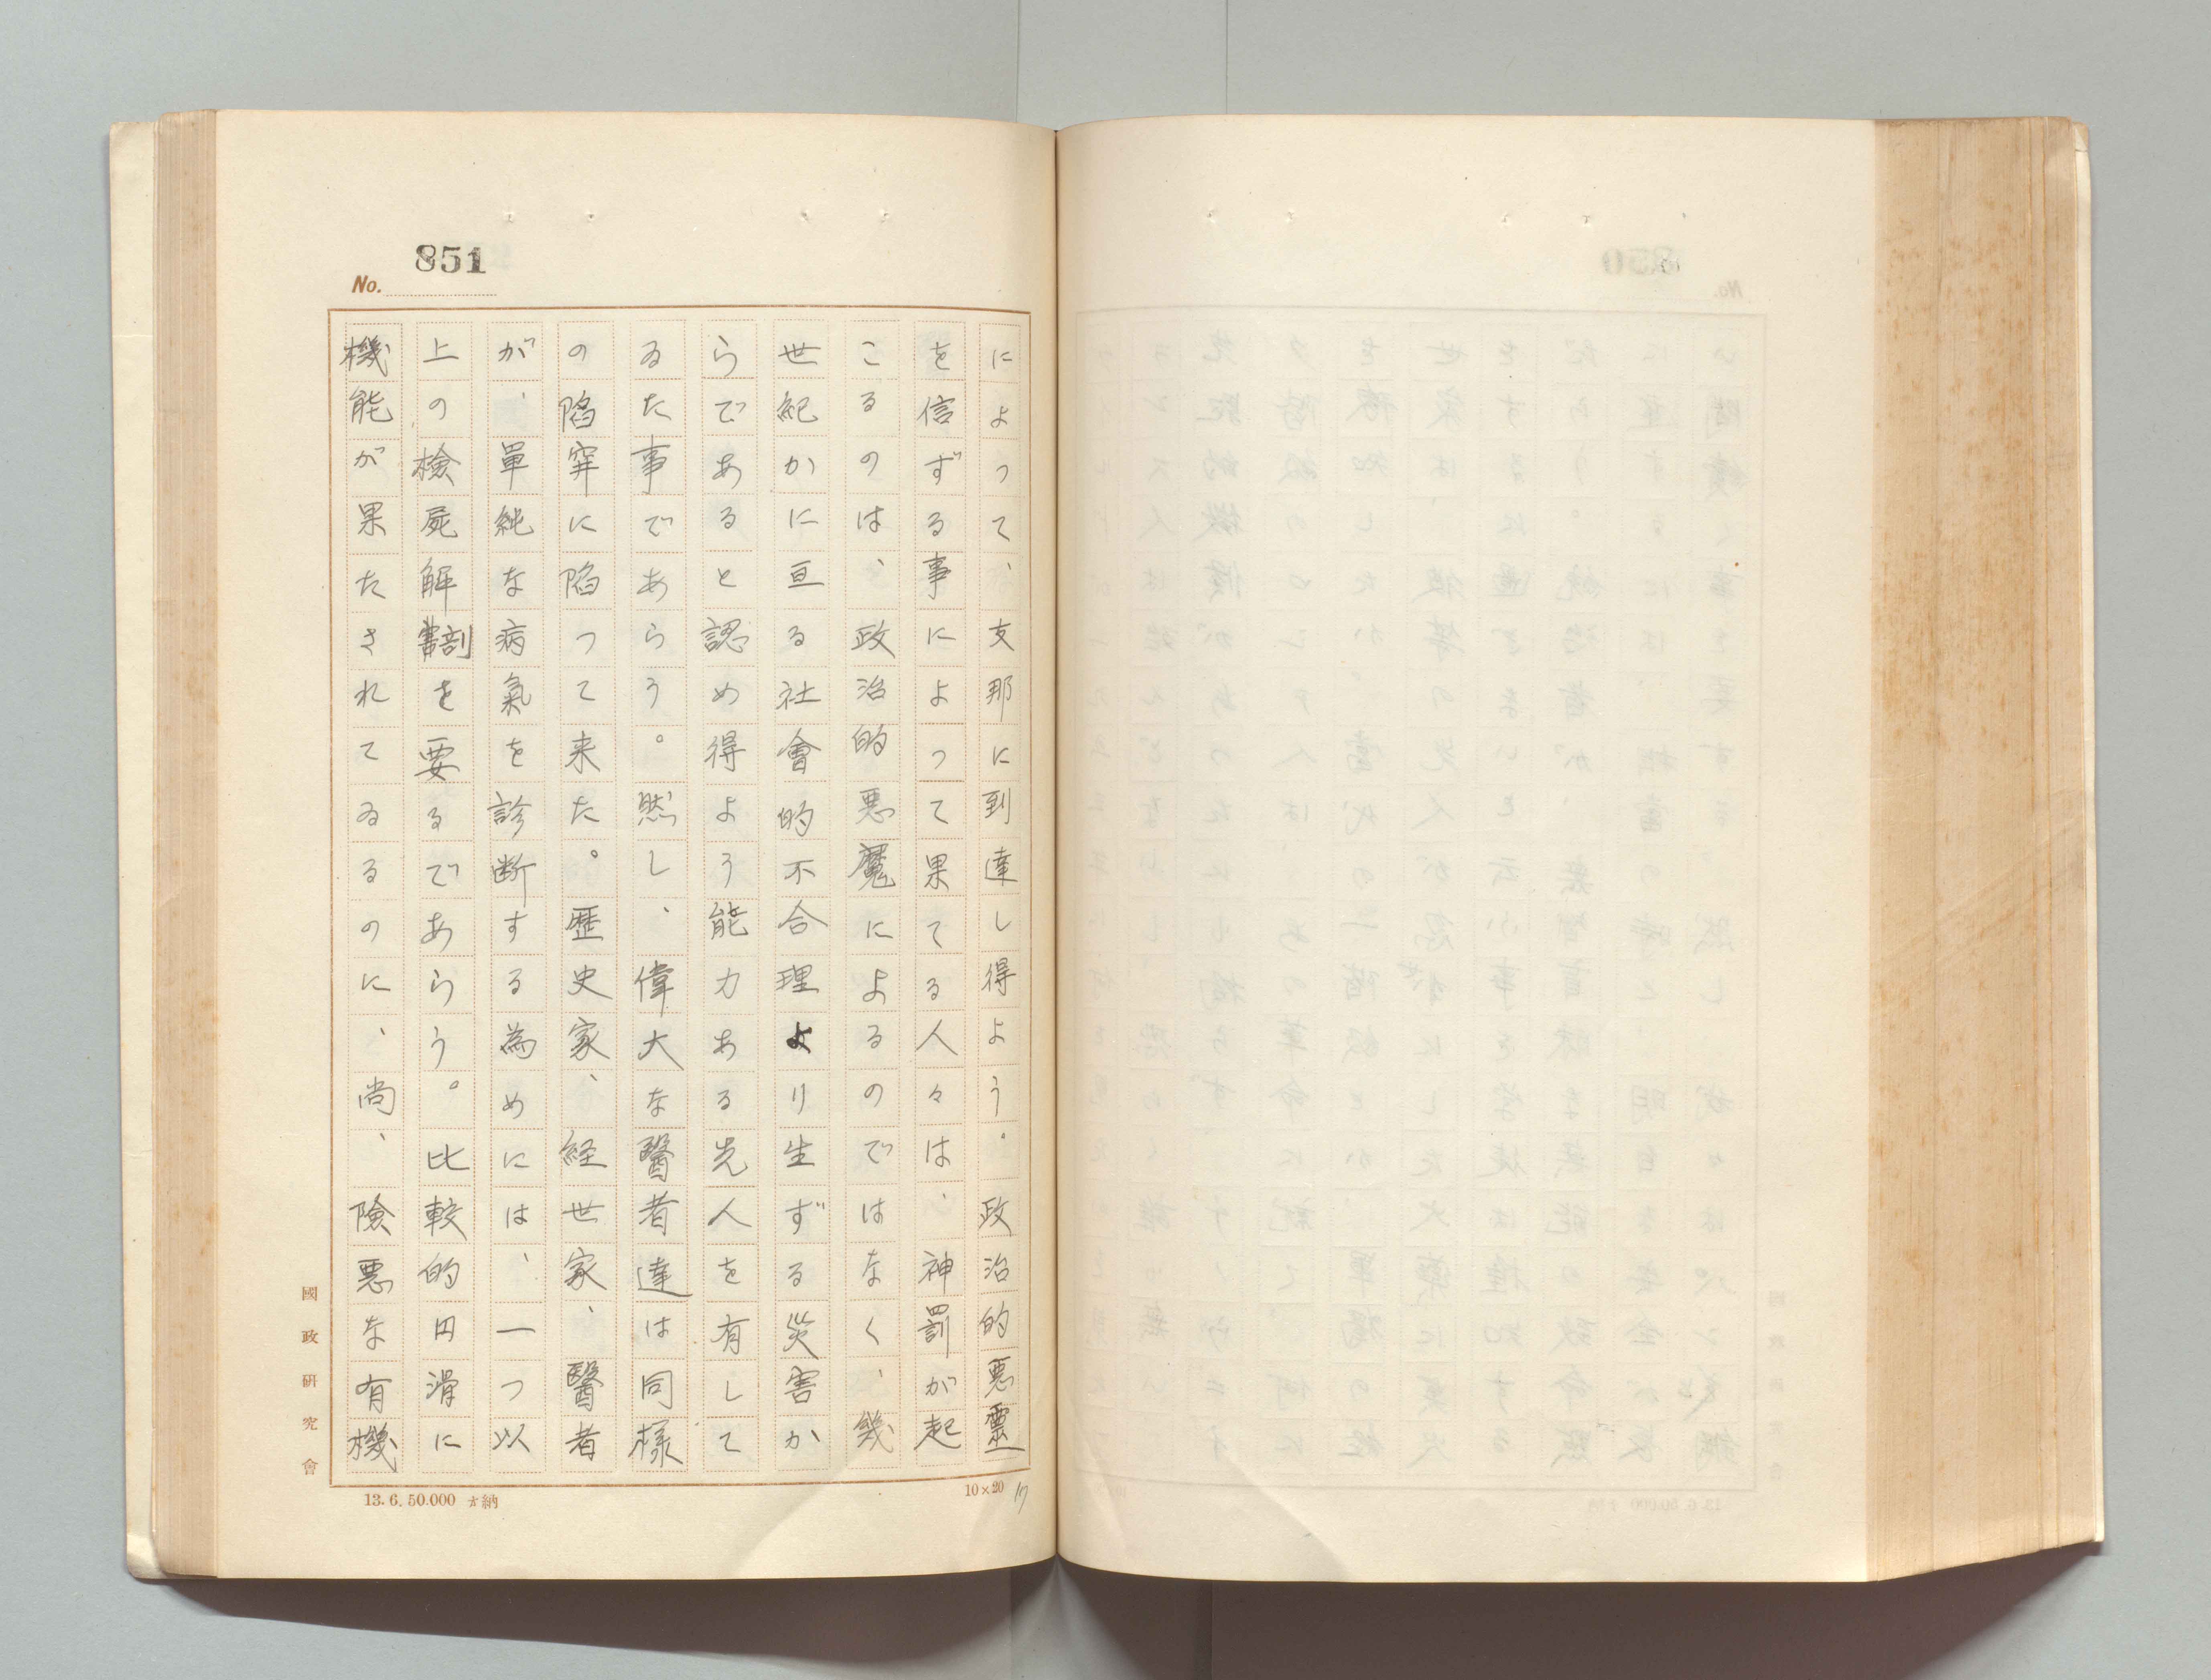 851
No.
によつて、支那に到達し得よう。政治的悪靈
を信ずる事によつて果てる人々は、神罰が起
こるのは、政治的悪魔によるのではなく、幾
世紀かに亘る社會的不合理より生ずる災害か
らであると認め得よう能力ある先人を有して
ゐた事であらう。然し、偉大な醫者達は同様
の陷穽に陷つて来た。歴史家、経世家、醫者
が、單純な病氣を診断する為めには、一つ以
上の檢屍解剖を要るであらう。比較的円滑に
機能が果たされてゐるのに、尚、險悪な有機
國政研究會
13.6.50.000 納
10×20
17